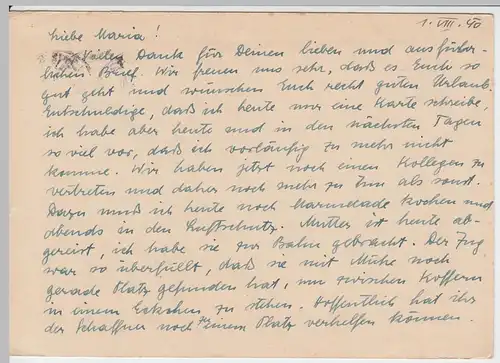 1. VIII. 40
Liebe Maria!
Vielen Dank für Deinen lieben und ausführ-
lichen Brief. Wir freuen uns sehr, daß es Euch so
gut geht und wünschen Euch recht guten Urlaub.
Entschuldige, daß ich heute nur eine Karte schreibe,
ich habe aber heute und in den nächsten Tagen
so viel vor, daß ich vorläufig zu mehr nicht
komme. Wir haben jetzt noch einen Kollegen zu
vertreten und daher noch mehr zu tun als sonst.
Dazu muß ich heute noch Marmelade kochen und
abends in den Luftschutz. Mutter ist heute ab-
gereist, ich habe sie zur Bahn gebracht. Der Zug
war so überfüllt, daß sie mit Mühe noch
gerade Platz gefunden hat, um zwischen Koffern
in einem Eckchen zu stehen. Hoffentlich hat ihr
der Schaffner noch zu einem Platz verhelfen können.